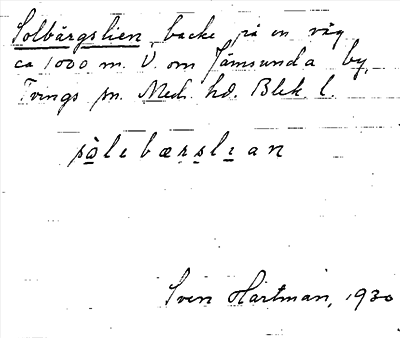 Solbärgslien, backe på en väg
ca 1000 m. V. om Jämsunda by,
Tvings sn. Med. hd. Blek. l.
sòlɩbærslɩan
Sven Hartman, 1930